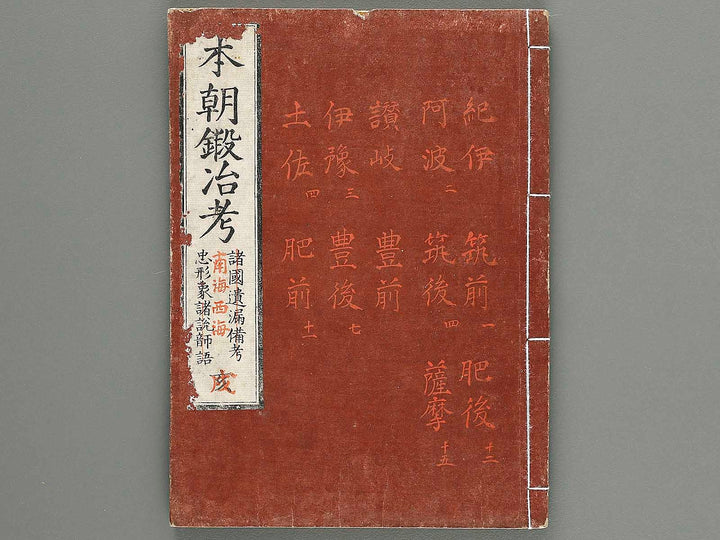 紀伊 筑前一 肥後十二
阿波二 筑後四 薩摩十五
讚岐 豊前
伊豫三 豊後七
土佐四 肥前十一
本朝鍛冶考
諸國遺漏備考
南海西海
忠形象諸説師語